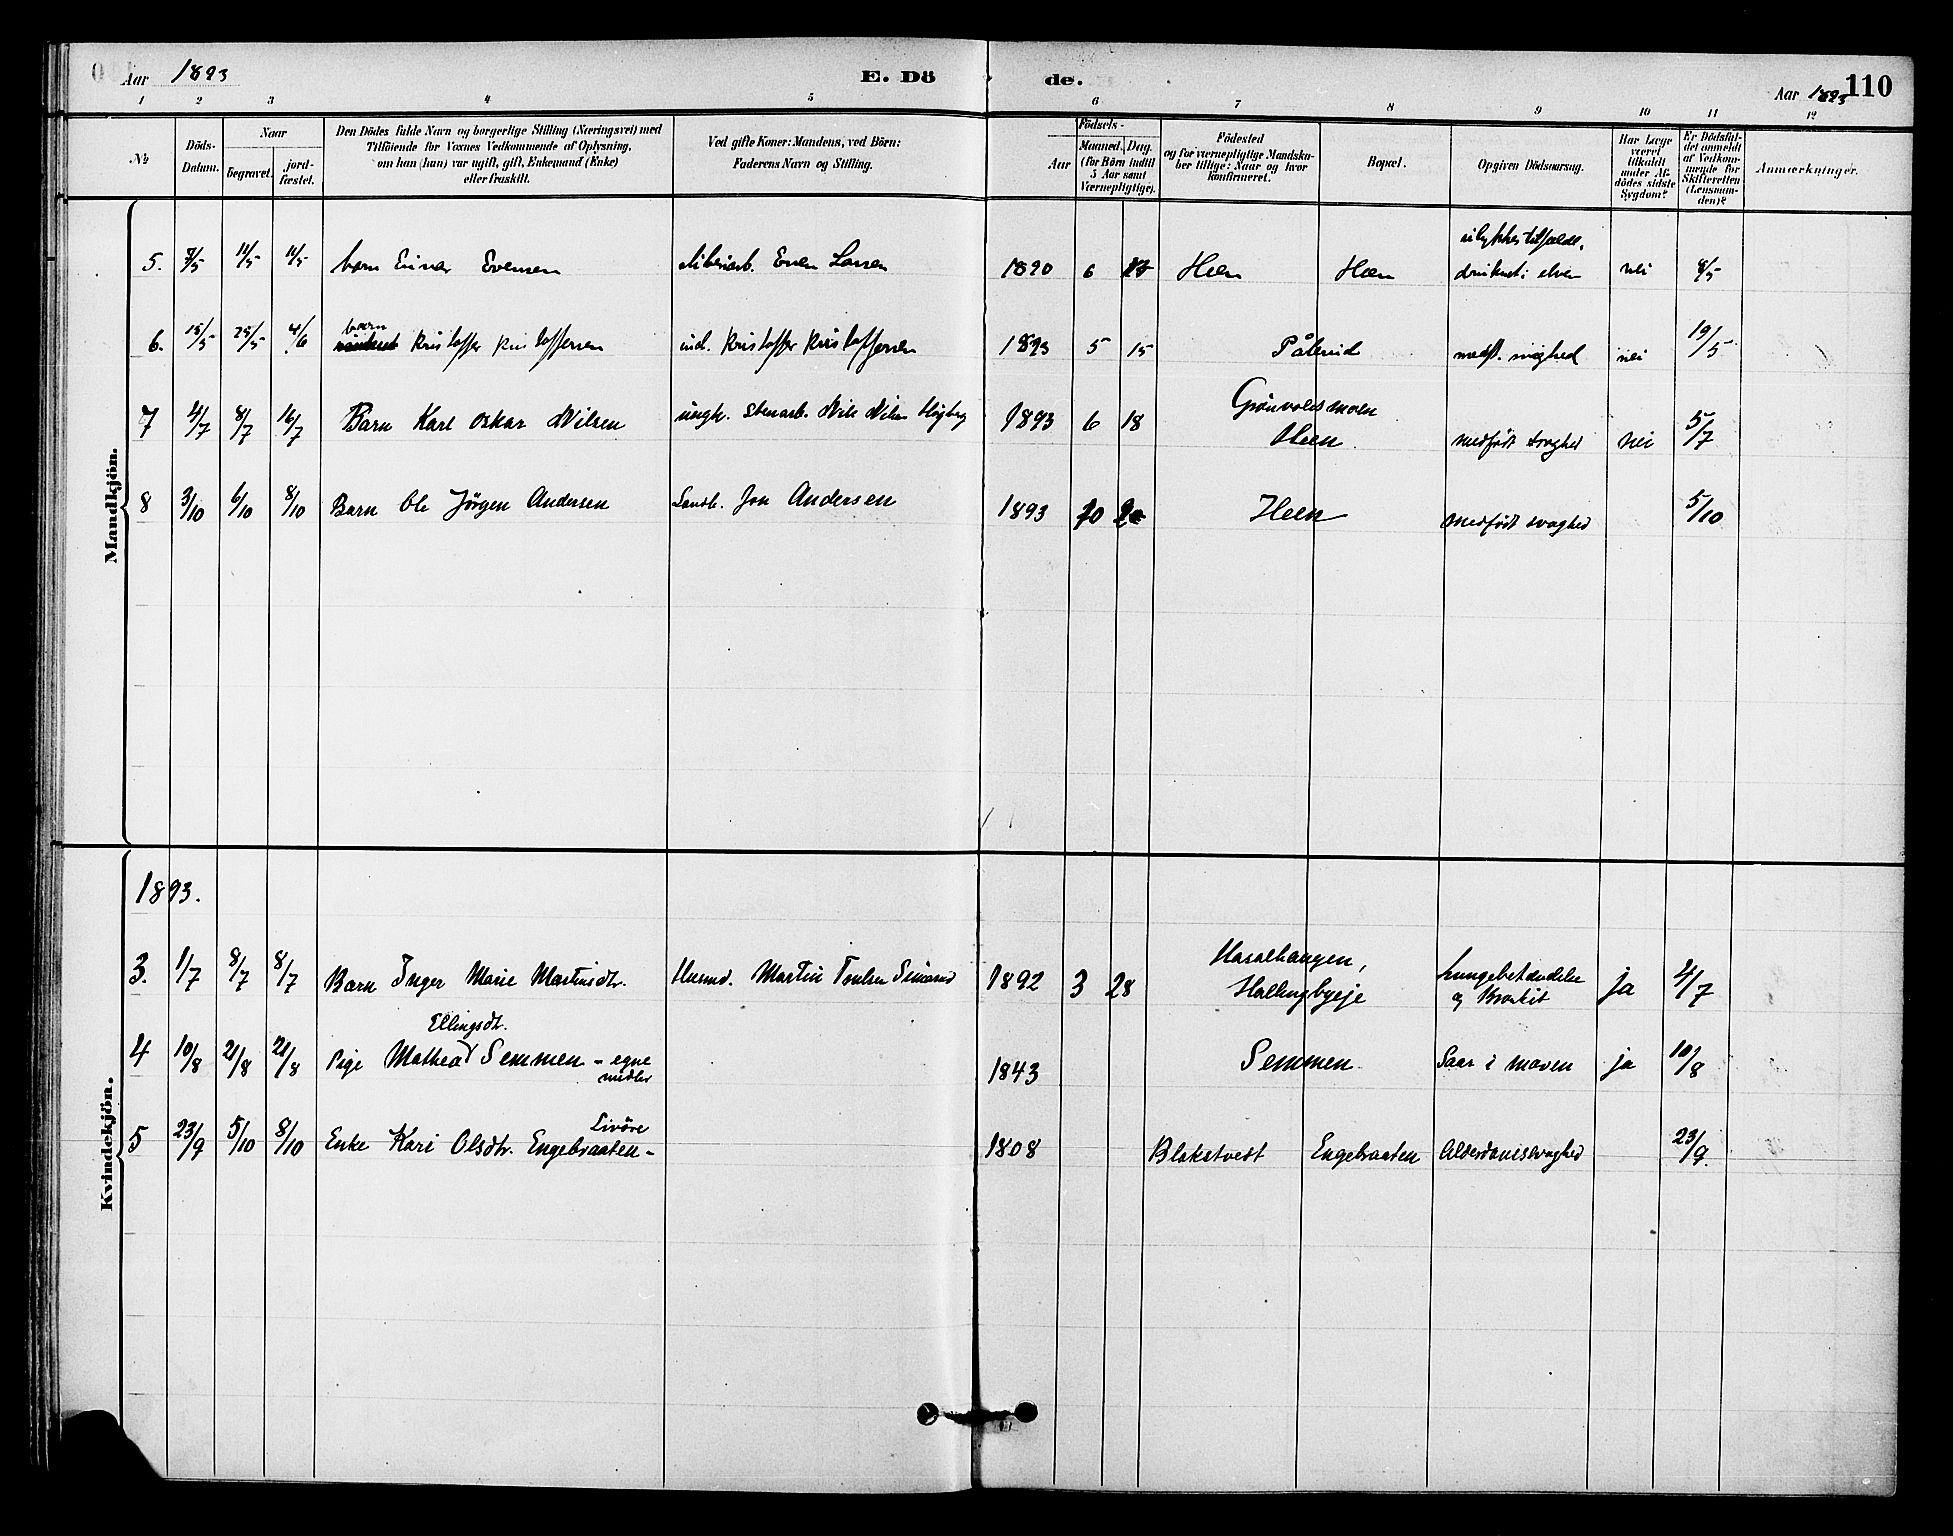 Aar 1893 E. Dö de. Aar 1893 110
1 2 3 4 5 6 7 8 9 10 11 12
No
Döds-Datum.
Naar
begravet.
jord-fæstet.
Den Dödes fulde Navn og borgerlige Stilling (Næringsvei) med
Tilföiende for Voxnes Vedkommende af Oplysning,
om han (hun) var ugift, gift, Enkemand (Enke)
eller fraskilt.
Ved gifte Koner: Mandens, ved Börn:
Faderens Navn og Stilling.
Födsels-
Aar
Maaned. Dag.
(for Börn indtil
5 Aar samt
Værnepligtige).
Födested
og for værnepligtige Mandska-
ber tillige: Naar og hvor
konfirmeret.
Bopæl.
Opgiven Dödsaarsag.
Har Læge
været
tilkaldt
under Af-
dödes sidste
Sygdom?
Er Dödsfal-
det anmeldt
af Vedkom-
mende for
Skifteretten
(Lensman-
den)?
Anmærkninger.
Mandkjön.
ulykkestilfælde,
5. 7/5 11/5 11/5 barn Einar Evensen Even Larsen 1890 6 Hen Hen druknet i elven nei 8/5
barn
6. 15/5 25/5 4/6 Kristoffer Kristoffersen ind. Kristoffer Kristoffersen 1893 5 15 Pålerud medf. svaghed nei 19/5
7 4/7 8/7 16/7 Barn Karl Oskar Nilsen ungk. stenarb. Nils Nilsen Högberg 1893 6 18 Grönvoldsmoen
Heen. medfödt svaghed nei 5/7
8 3/10 6/10 8/10 Barn Ole Jörgen Andersen Landh. Jon Andersen 1893 10 Heen medfödt svaghed 5/10
Kvindekjön.
1893.
3. 1/7 8/7 8/7 Barn Inger Marie Martinsdtr. Husmd. Martin Paulsen 1892 3 28 Hasalhaugen,
Hallingbyeje Lungebetændelse
og Bronkit ja 4/7
Ellingsdtr.
4 10/8 21/8 21/8 Pige Mathea Semmen - egne
midler 1843 Semmen Saar i maven ja 10/8
Livöre
5 23/9 5/10 8/10 Enke Kari Olsdtr. Engebraaten - 1808 Blakstvedt Engebraaten Alderdomssvaghed 23/9.